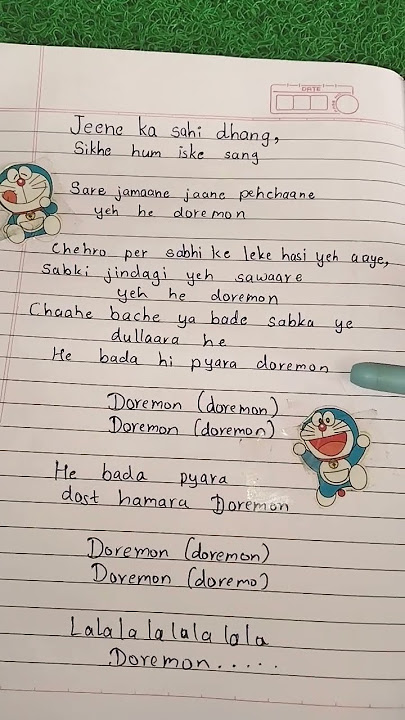 DATE
Jeene ka sahi dhang,
Sikhe hum iske sang
Sare jamaane jaane pehchaane
yeh he doremon
Chehro per sabhi ke leke hasi yeh aaye,
Sabki jindagi yeh sawaare
yeh he doremon
Chaahe bache ya bade sabka ye
dullaara he
He bada hi pyara doremon
Doremon (doremon)
Doremon (doremon)
He bada pyara
dost hamara Doremon
Doremon (doremon)
Doremon (doremo)
Lalala lalala lala
Doremon.....